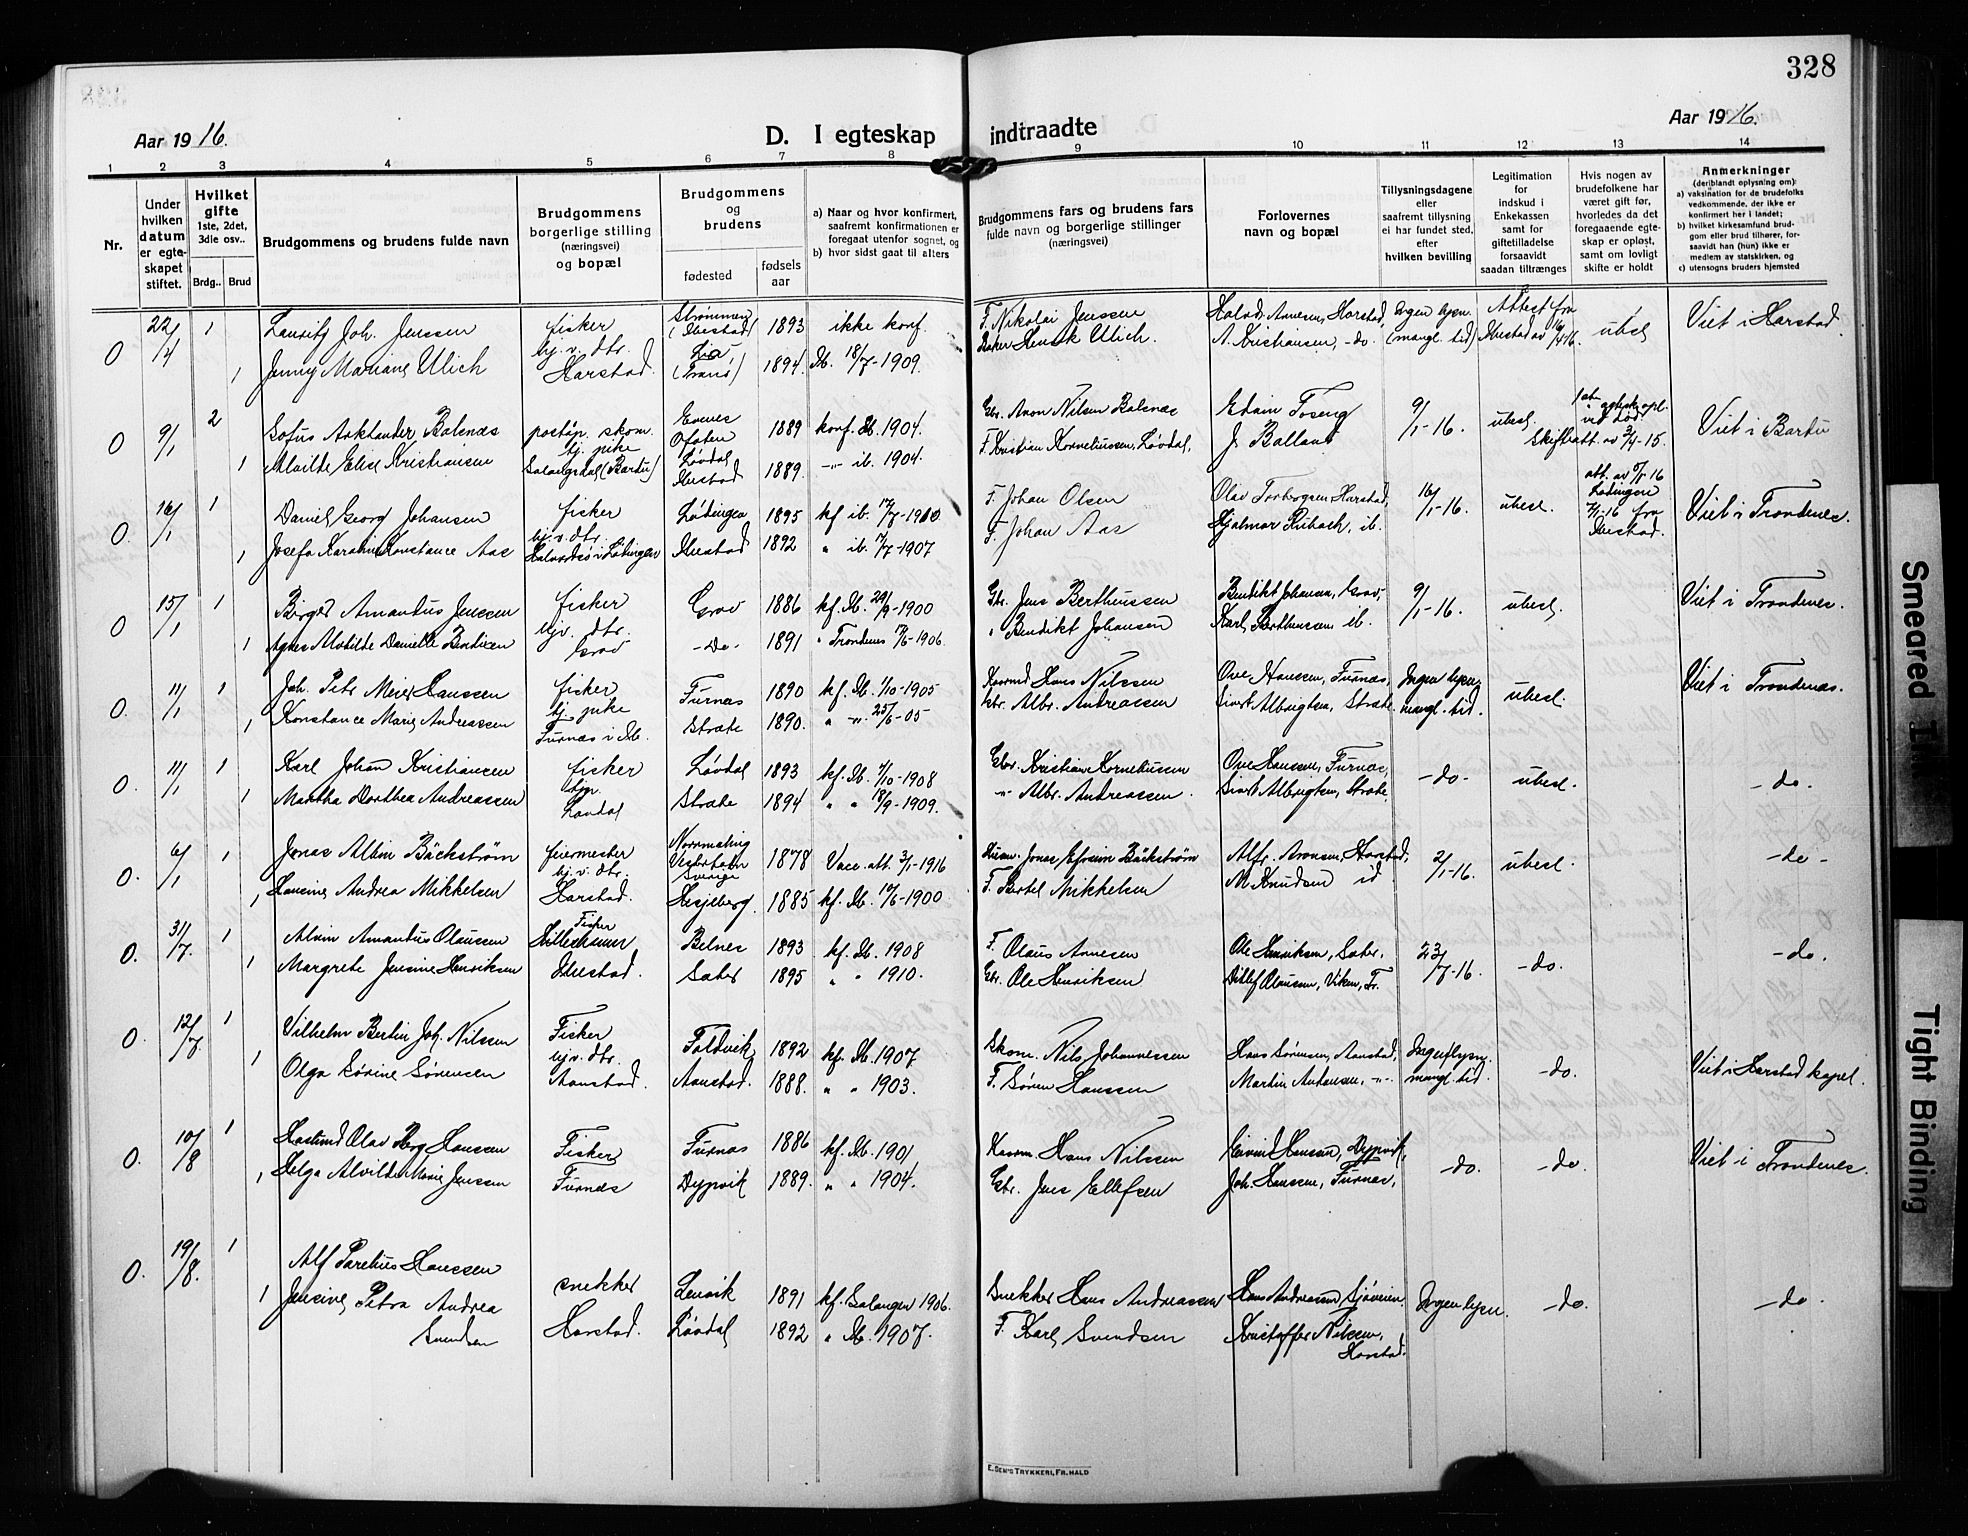 328
Aar 1916.
D. I egteskap indtraadte
Aar 1916.
1 2 3 4 5 6 7 8 9 10 11 12 13 14
Nr.
Under hvilken datum er egteskapet stiftet.
Hvilket gifte 1ste, 2det, 3die osv..
Brdg.. Brud
Brudgommens og brudens fulde navn
Brudgommens borgerlige stilling (næringsvei) og bopæl
Brudgommens og brudens
fødested
fødsels aar
a) Naar og hvor konfirmert, saafremt konfirmationen er foregaat utenfor sognet, og
b) hvor sidst gaat til alters
Brudgommens fars og brudens fars fulde navn og borgerlige stillinger (næringsvei)
Forlovernes navn og bopæl
Tillysningsdagene eller saafremt tillysning ei har fundet sted, efter hvilken bevilling
Legitimation for indskud i Enkekassen samt for giftetilladelse forsaavidt saadan tiltrænges
Hvis nogen av brudefolkene har været gift før, hvorledes da det foregaaende egteskap er opløst, samt om lovligt skifte er holdt
Anmerkninger
(deriblandt oplysning om):
a) vaksination for de brudefolks vedkommende, der ikke er konfirmert her i landet;
b) hvilket kirkesamfund brudgom eller brud tilhører, forsaavidt han (hun) ikke er medlem av statskirken, og
c) utensogns bruders hjemsted
0 22/4 1 Lauritz Joh. Jenssen fisker Strømmen (Ibestad) 1893 ikke konf. F. Nikolai Jenssen Harstad, Ingen lysn. Attest fra ubesl Viet i Harstad.
1 Jenny Mariane Ulich hj. v. dtr. Harstad. Lia, (Tranø) 1894 Ib. 18/7-1909. Baker Henrik Ulich. A. Kristiansen, -do. (mangl. tid) Ibestad av
0 9/1 2 Sofus Arktander Balsnæs postop. skom. Evenes Ofoten 1889 konf. Ib. 1904. Gbr. Aron Nilsen Balsnæs Edvin Foseng 9/1-16. ubesl. Skifteatt. av 3/4-15. Viet i Bardu
1 Alvilde Elise Kristiansen hj. pike Salangsdal (Bardu) Løvdal Ibestad 1889. -"- ib. 1904. F. Kristian Korneliussen, Løvdal, J. Balland
0 16/1 1 Daniel Georg Johansen fisker Lødingen 1895 kf ib. 17/7-1910 F. Johan Olsen Olav Torbergsen Harstad, 16/1-16. ubesl. att. av 5/1 16 Lødingen 7/1-16 fra Ibestad. Viet i Trondenes.
1 Josefa Karstine Konstance Aas hj. v. dtr. i Lødingen Ibestad 1892 " ib. 7/7-1907 F. Johan Aas Hjalmar Rubach, ib.
0 15/1 1 Birger Amandus Jenssen fisker Grov 1886 kf. Ib. 29/9-1900 Gbr. Jens Berthussen Benedikt Johansen, Grov, 9/1-16. ubesl. Viet i Trondenes.
1 Agnes Matilde Danielle Bentzen hjv. dtr. Grov -Do- 1891 " Trondenes 17/6-1906. " Bendikt Johansen Karl Berthussen ib.
0. 11/1 1 Joh. Petr Meier Hanssen fisker Furnæs 1890 kf. Ib. 1/10-1905 Hans Nilssen Ove Hanssen, Furnæs, Ingen lysn. ubesl. Viet i Trondenes.
1 Konstance Marie Andreassen hj. pike Furnæs i Ib. Strate 1890. " -"- 25/6-05 Gbr. Albr. Andreassen Sivert Albrigtsen, Strate. mangl. tid.
0. 11/1 1 Karl Johan Kristiansen fisker Løvdal 1893 kf. Ib. 4/10-1908 Gbr. Kristian Korneliussen Ove Hanssen, Furnæs, -do- ubesl. -do.
1 Martha Dorthea Andreassen hjp. Løvdal Strate 1894 " " 18/9-1909. -"- Albr. Andreassen. Sivert Albrigtsen, Strate.
0. 6/1 1 Jonas Albin Bäckstrøm feiermester Nordmaling Sverige 1878 Vacc. att. 3/1-1916 Jonas Efraim Bäckstrøm Alfr. Aronsen, Harstad, 2/1-16. ubesl. -do-
1 Hansine Andrea Mikkelsen hj. v. dtr. Harstad. Hesjeberg. 1885 kf. Ib. 17/6-1900 F. Bertel Mikkelsen M. Knudsen id
0. 31/7. 1 Alvin Amandus Olaussen Fisker Hilleshamn Belnes 1893 kf. Ib. 1908 F. Olaus Arnesen Ole Henriksen, Sæter, 23/7-16. -do. -do.
1 Margrete Jensine Henriksen Ibestad. Sæter 1895 " " 1910. Gbr. Ole Henriksen Ditlef Olaussen, Viken, Tr.
0. 12/7. 1 Vilhelm Bertin Joh. Nilsen Fisker Foldvik 1892 kf. Ib. 1907 Skom. Nils Johannessen Hans Sørensen, Aanstad, Ingen lysn. -do. Viet i Harstad kapel.
1 Olga Sørine Sørensen hj. v. dtr. Aanstad. Aanstad. 1888. " " 1903. F. Søren Hanssen Martin Antonsen, -"- mangl. tid.
0. 10/8 1 Haslund Olav Berg Hanssen Fisker Furnæs 1886 kf. Ib. 1901 Hans Nilssen Eivind Hansen, Dypvik, -do. -do. Viet i Trondenes.
1 Helga Alvilde Marie Jenssen Furnæs Dypvik 1889. " " 1904. Gbr. Jens Ellefsen Joh. Hanssen, Furnæs,
0. 19/8. 1 Alf Parelius Hanssen snekker Lenvik 1891 kf. Salangen 1906. Snekker Hans Andreassen Hans Andreassen Sjøveien Ingen lysn. -do. -do.
1 Jensine Petra Andrea Svendsen Harstad. Løvdal 1892 " Ib. 1907. F. Karl Svendsen Kristoffer Nilssen, Harstad.
E. SEM'S TRYKKERI, FR.HALD
Smeared Ink
Tight Binding